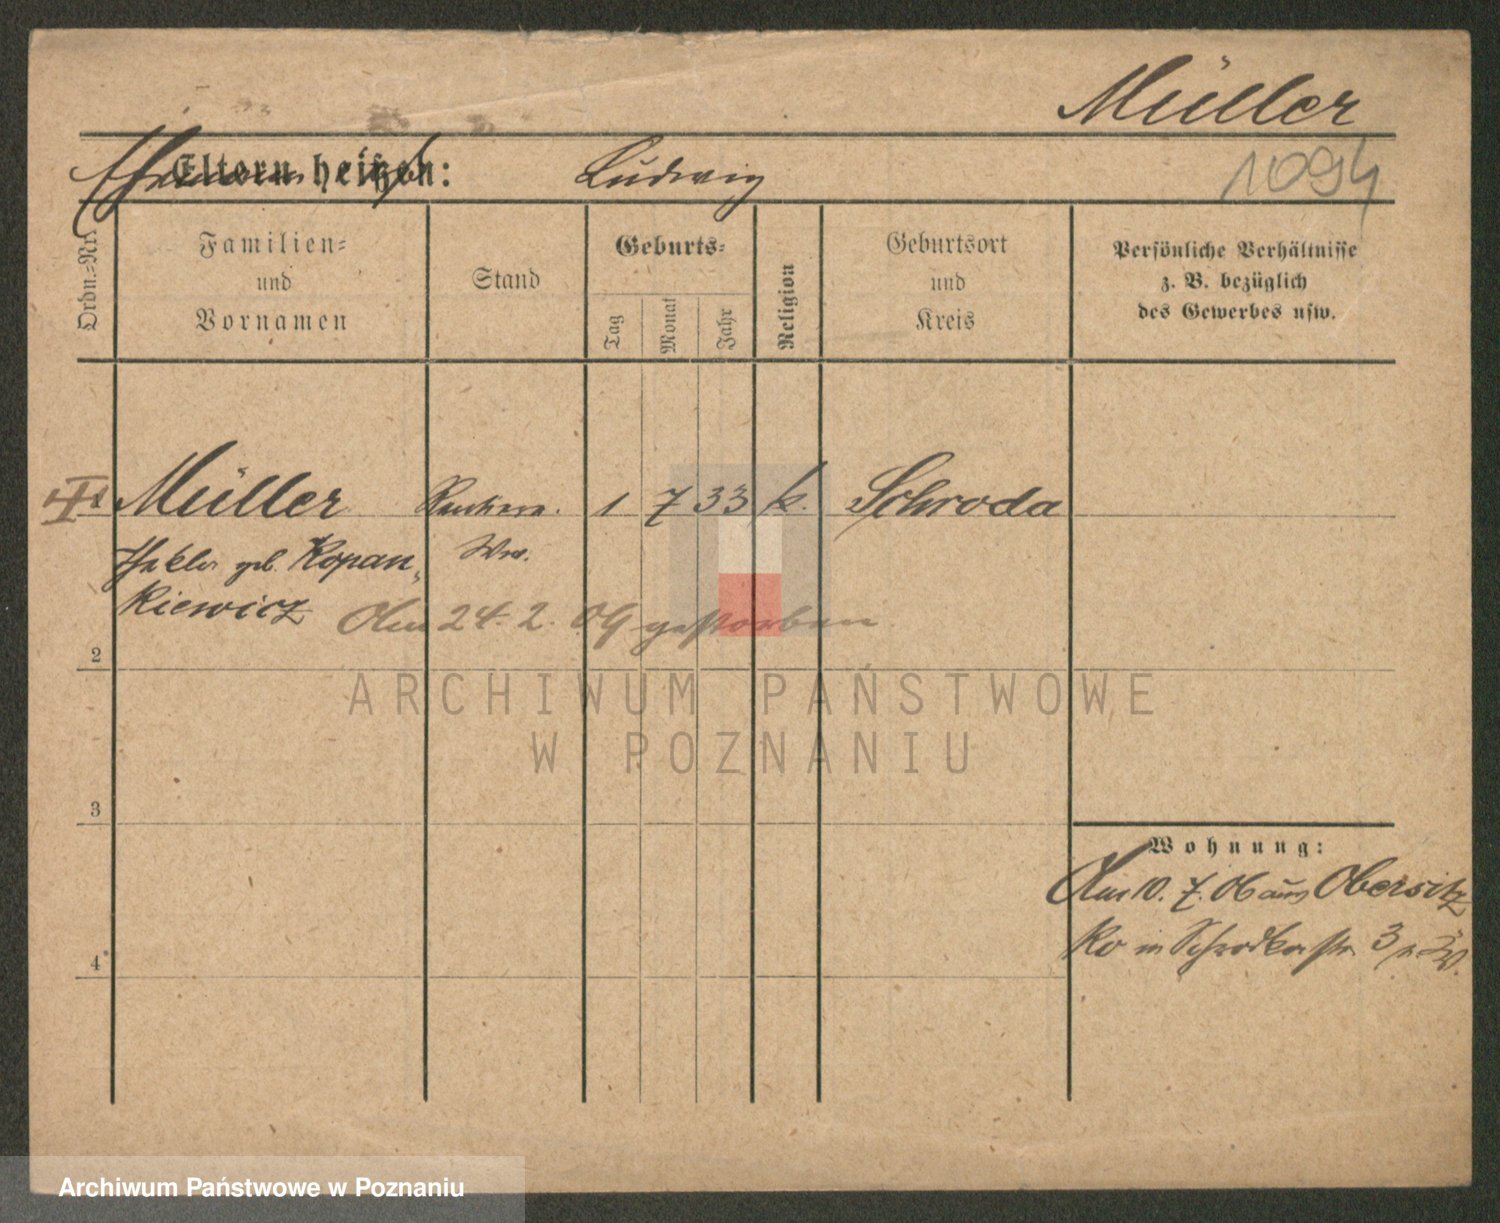 Müller
Eltern heißen: Ludwig
1094
Ordn.-Nr.
Familien-
und
Vornamen
Stand
Geburts-
Tag
Monat
Jahr
Religion
Geburtsort
und
Kreis
Persönliche Verhältnisse
z. B. bezüglich
des Gewerbes usw.
1 Müller 1 7 33 k. Schroda
Thekla geb. Kopan-
Ww.
kiewicz
Am 24. 2. 09 gestorben
2
3
4
Wohnung:
Am 10. 7. 06 aus Obersitz
Ko in Schrodkastr. 3
ARCHIWUM PAŃSTWOWE
W POZNANIU
Archiwum Państwowe w Poznaniu